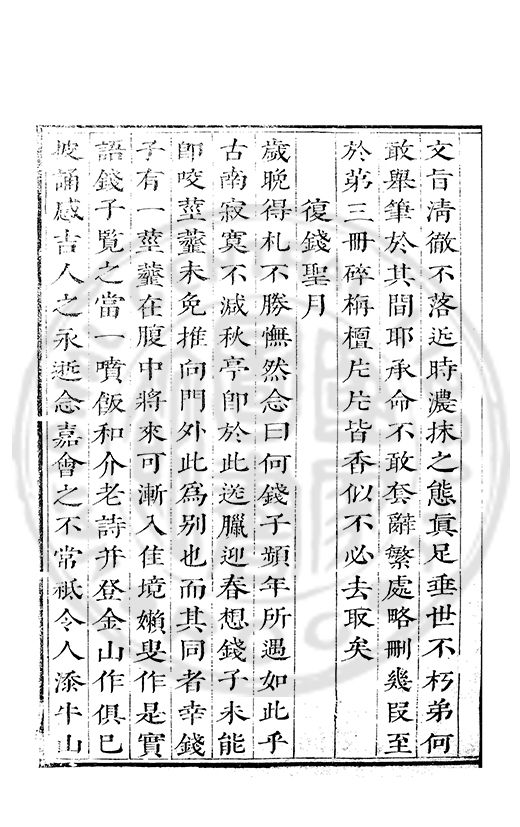 文旨清徹不落近時濃抹之態眞足垂世不朽弟何
敢舉筆於其間耶承命不敢套辭繁處略刪幾段至
於第三冊碎栴檀片片皆香似不必去取矣
復錢聖月
歲晚得札不勝憮然念曰何錢子頻年所遇如此乎
古南寂寞不減秋亭卽於此送臘迎春想錢子未能
卽咬莖虀未免推向門外此爲別也而其同者幸錢
子有一莖虀在腹中將來可漸入佳境嬾叟作是實
語錢子覽之當一噴飯和介老詩幷登金山作俱已
披誦感吉人之永逝念嘉會之不常祇令人添牛山